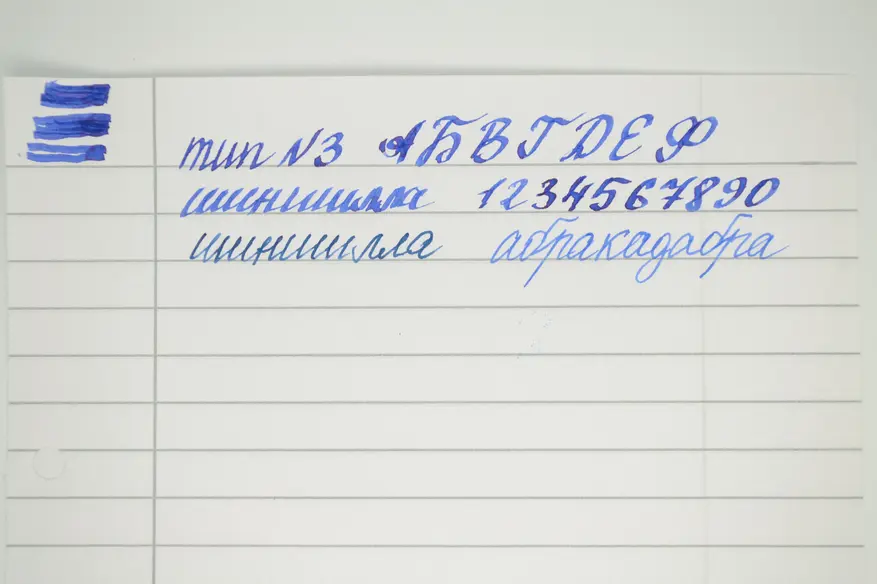 тип N3 АБВГДЕФ
шиншилла 1234567890
шиншилла абракадабра